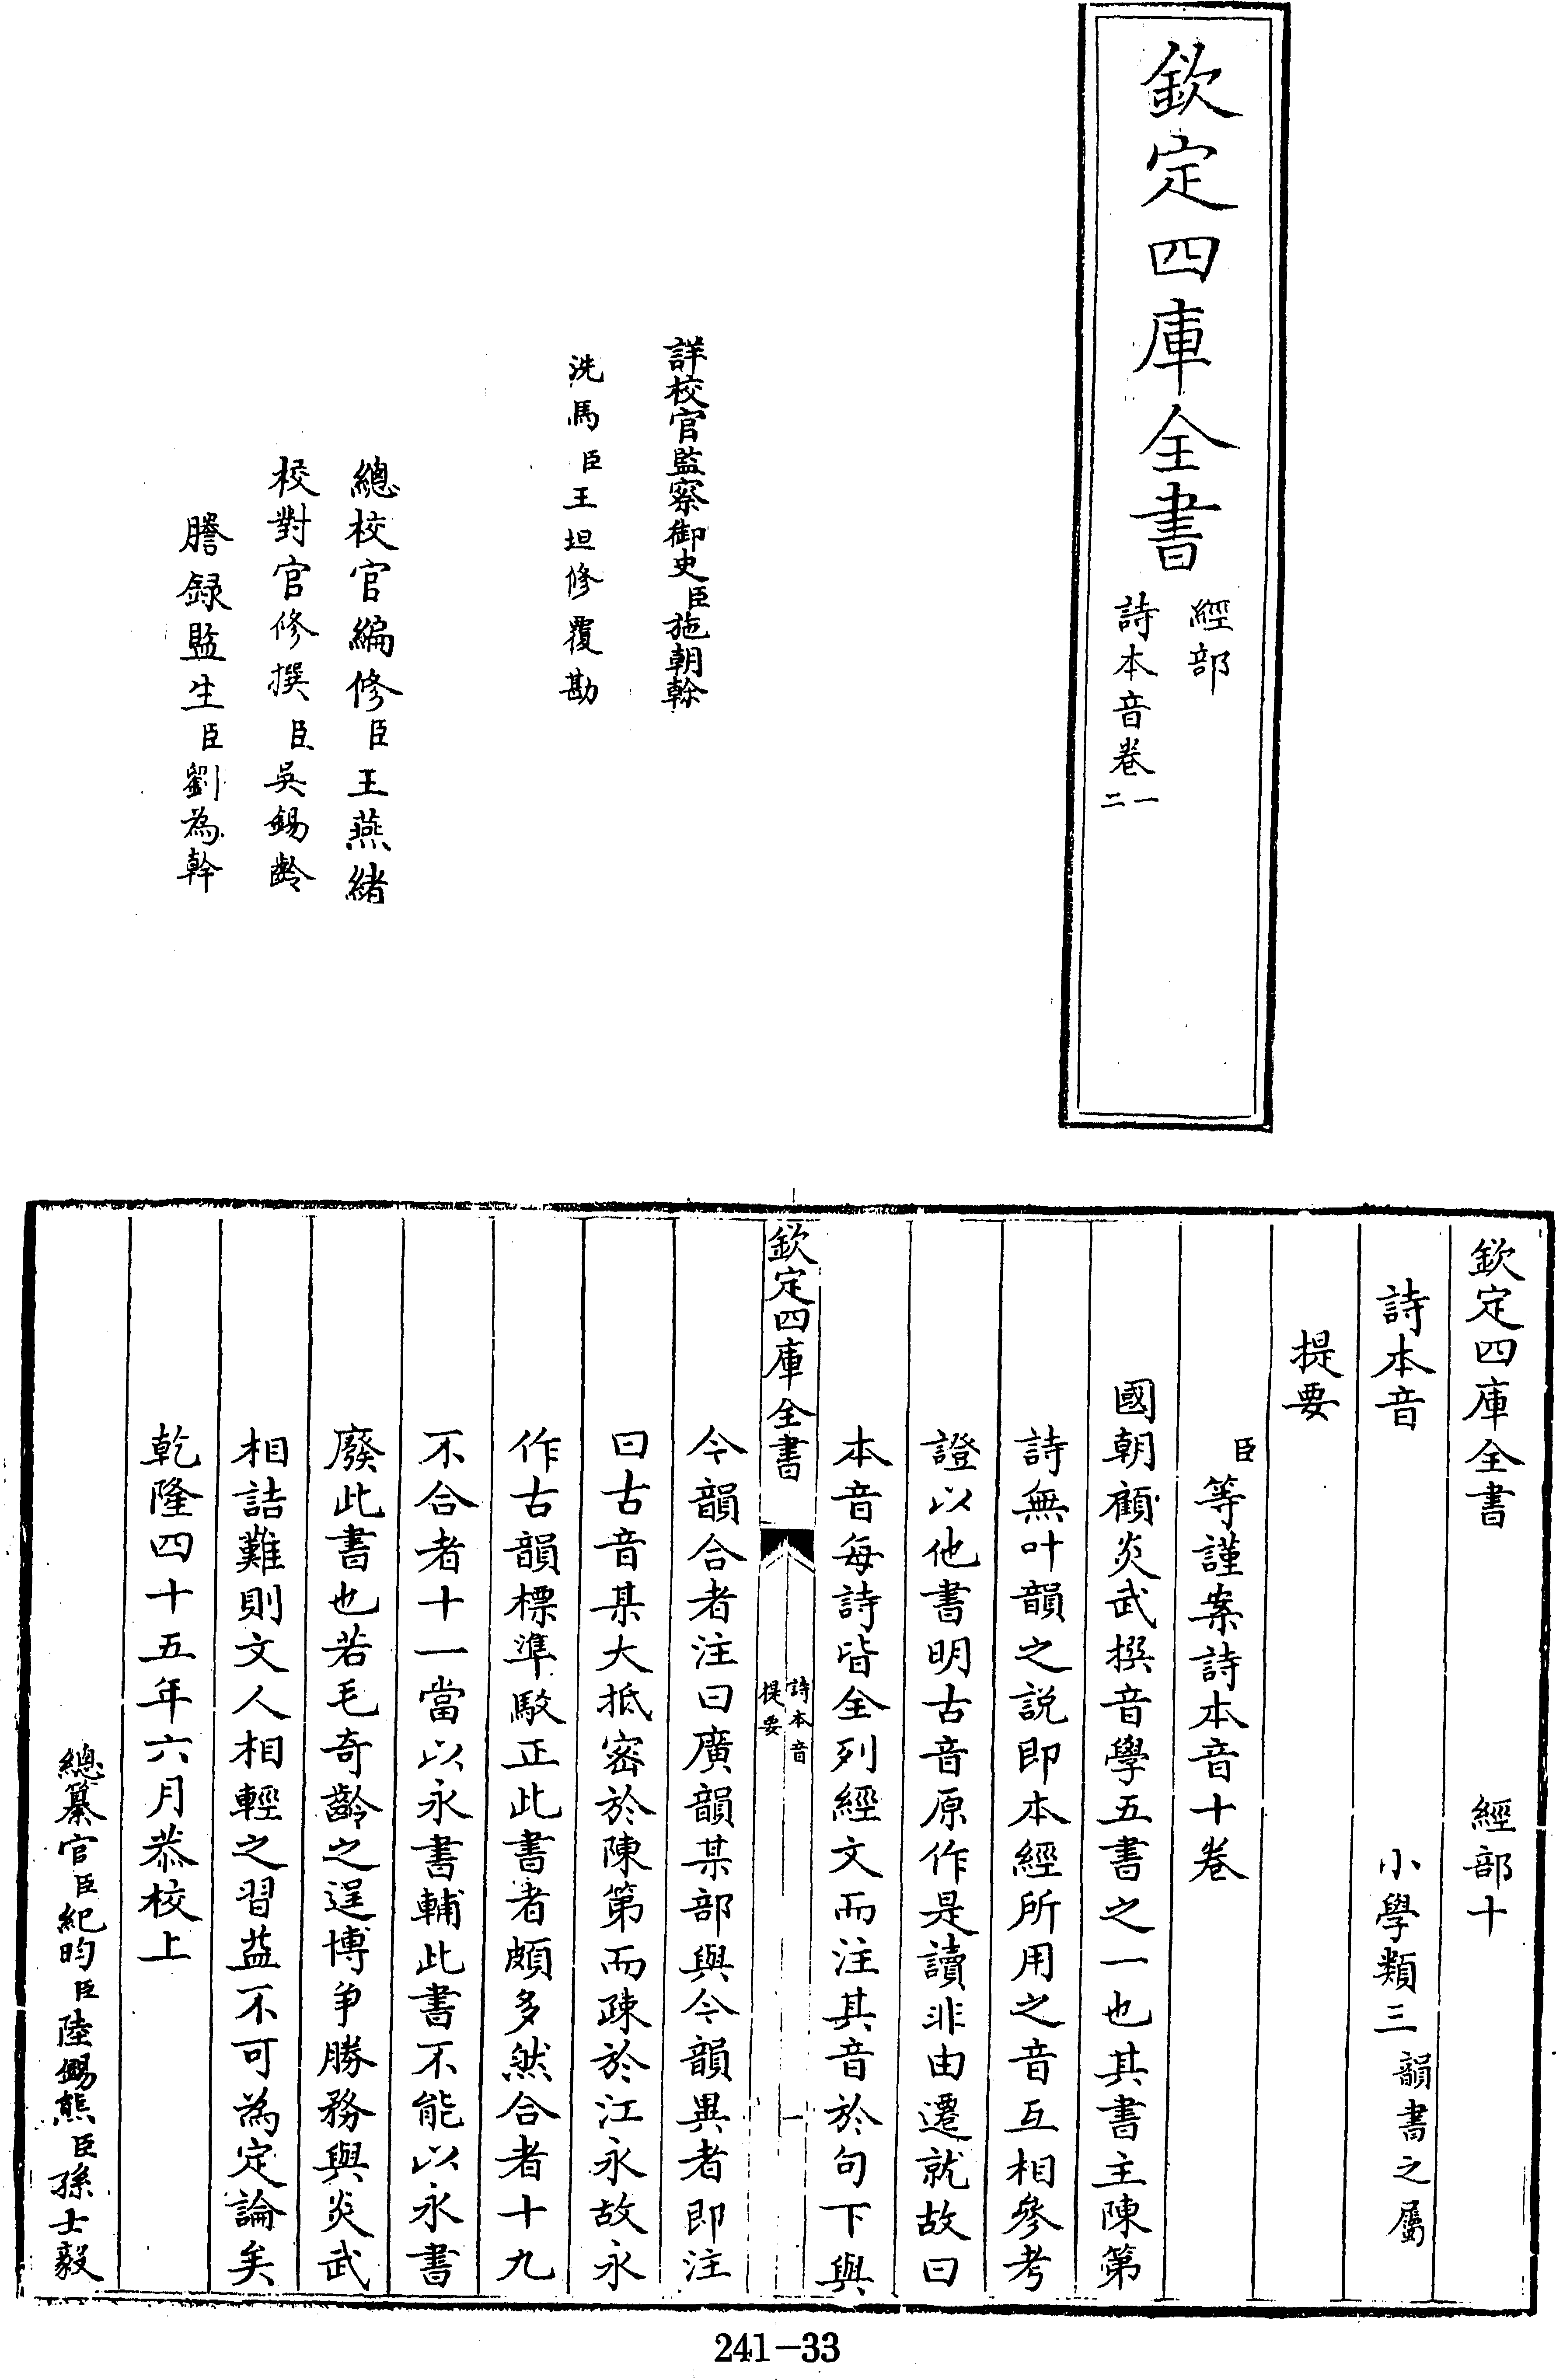 欽定四庫全書
經部
詩本音卷一二
詳校官監察御史臣施朝榦
洗馬臣王坦修覆勘
總校官編修臣王燕緒
校對官修撰臣吳錫齡
謄録監生臣劉為幹
欽定四庫全書　經部十
詩本音　小學類三韻書之屬
提要
臣等謹案詩本音十卷
國朝顧炎武撰音學五書之一也其書主陳第
詩無叶韻之説即本經所用之音互相參考
證以他書明古音原作是讀非由遷就故曰
本音每詩皆全列經文而注其音於句下與
欽定四庫全書
詩本音
提要
一
今韻合者注曰廣韻某部與今韻異者即注
曰古音某大抵密於陳第而疎於江永故永
作古韻標準駁正此書者頗多然合者十九
不合者十一當以永書輔此書不能以永書
廢此書也若毛奇齡之逞博爭勝務與炎武
相詰難則文人相輕之習益不可為定論矣
乾隆四十五年六月恭校上
總纂官臣紀昀臣陸錫熊臣孫士毅
241-33